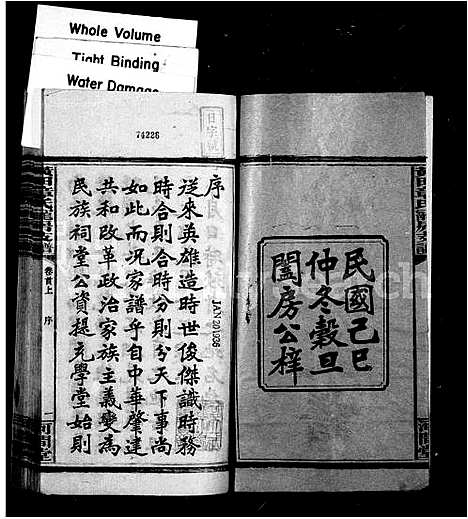 Whole Volume
Tight Binding
Water Damage
74226
民國己巳
仲冬穀旦
闔房公梓
JAN 20 1936
序
從來英雄造時世俊傑識時務
時合則合時分則分天下事尚
如此而况家譜乎自中華肇建
共和改革政治家族主義變為
民族祠堂公資提充學堂始則
卷首上
序
河間堂